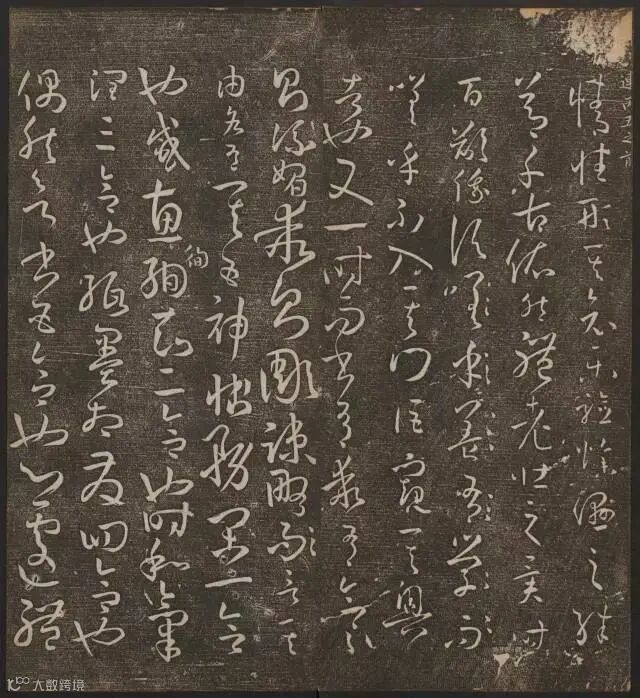 情性形其哀樂驗燥濕之殊
節千古依然體老壯之異時
百齡俄頃
嗟乎不入其門詎窺其奧
者也又一時而書有乖有合合
則流媚乖則彫疎略言其
由各有其五神怡務閑一合
也感惠徇知二合也時和氣
徇
潤三合也紙墨相發四合也
偶然欲書五合也心遽體
大数跨境